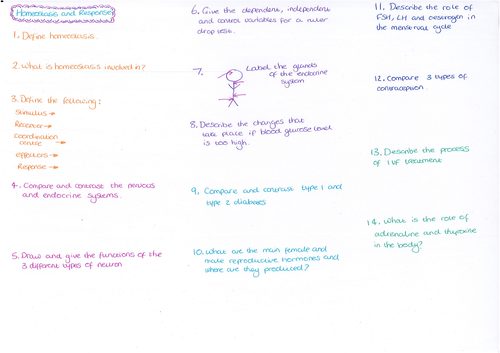 Homeostasis and Response
1. Define homeostasis.
2. What is homeostasis involved in?
3. Define the following:
Stimulus →
Receptor →
Coordination
centre →
effectors →
Reponse →
4. Compare and contrast the nervous
and endocrine systems.
5. Draw and give the functions of the
3 different types of neuron
6. Give the dependent, independent
and control variables for a ruler
drop test.
7.
Label the glands
of the endocrine
system
8. Describe the changes that
take place if blood glucose level
is too high.
9. Compare and contrast type 1 and
type 2 diabetes
10. What are the main female and
male reproductive hormones and
where are they produced?
11. Describe the role of
FSH, LH and oestrogen in
the menstrual cycle
12. Compare 3 types of
contraception.
13. Describe the process
of IVF treatment
14. What is the role of
adrenaline and thyroxine
in the body?